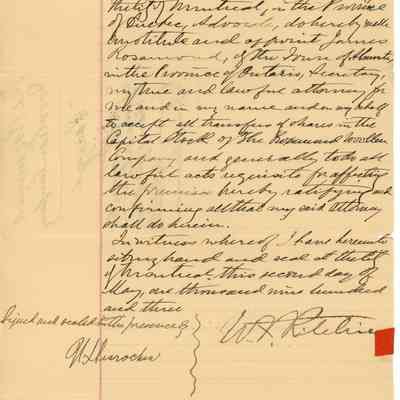 the City of Montreal, in the Province
of Quebec, Advocate, do hereby make
constitute and appoint James
Rosamond, of the Town of Almonte,
in the Province of Ontario, Secretary,
my true and lawful attorney for
me and in my name and on my behalf
to accept all transfers of shares in the
Capital Stock of The Rosamond Woollen
Company and generally to do all
lawful acts requisite for affecting
the premises hereby ratifying and
confirming all that my said attorney
shall do herein.
In witness whereof I have hereunto
set my hand and seal at the City
of Montreal, this second day of
May, one thousand nine hundred
and three
Signed and sealed in the presence of
W. F. Ritchie